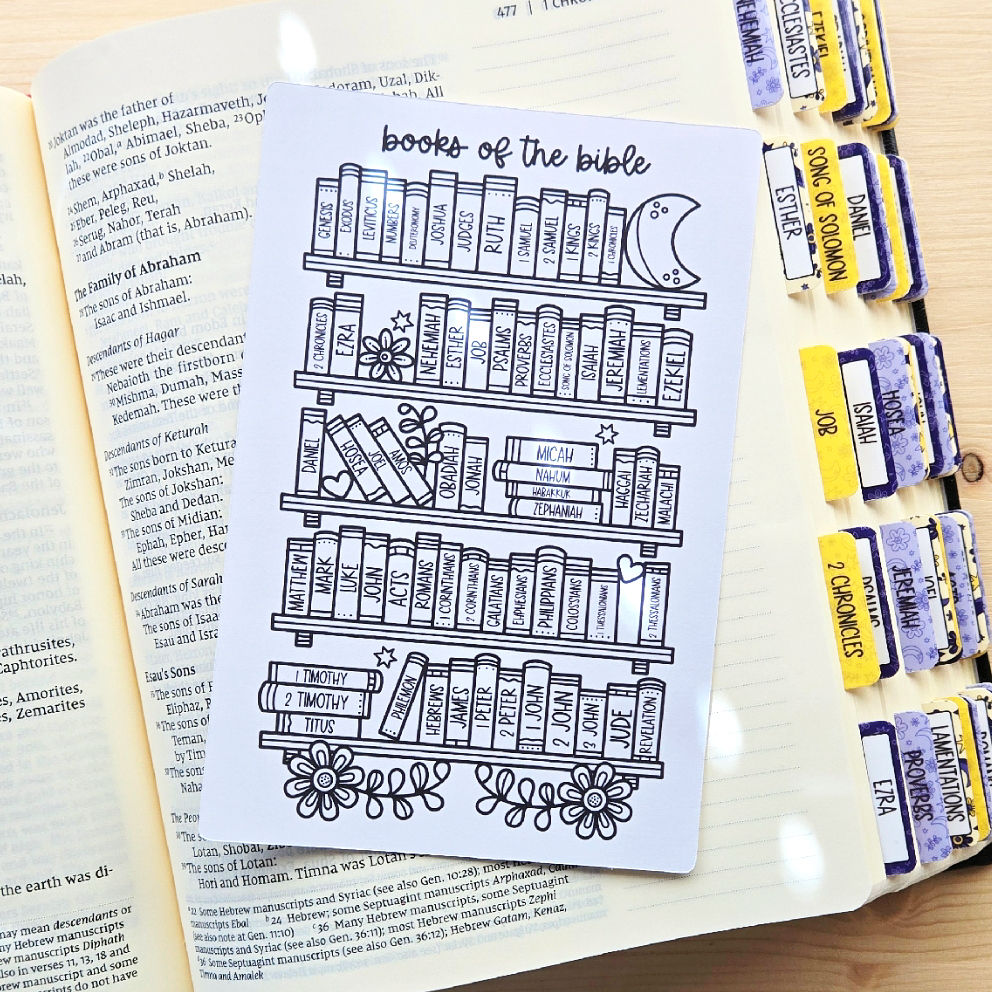 477 | 1 CHRO
Joktan was the father of
Almodad, Sheleph, Hazarmaveth, Je
doram, Uzal, Dik-
lah, 22 Obal,a Abimael, Sheba, 23 Oph
bah. All
these were sons of Joktan.
24 Shem, Arphaxad,b Shelah,
25 Eber, Peleg, Reu,
26 Serug, Nahor, Terah
27 and Abram (that is, Abraham).
The Family of Abraham
28 The sons of Abraham:
Isaac and Ishmael.
Descendants of Hagar
29 These were their descendant
Nebaioth the firstborn o
30 Mishma, Dumah, Mass
Kedemah. These were th
Descendants of Keturah
The sons born to Ketura
Zimran, Jokshan, Me
The sons of Jokshan:
Sheba and Dedan.
33 The sons of Midian:
Ephah, Epher, Han
All these were desc
Descendants of Sarah
34 Abraham was the
The sons of Isaac
Esau and Isra
Esau's Sons
35 The sons of
Eliphaz, R
36 The sons of
Teman,
by Tim
37 The sons
Naha
The Peop
38 The so
Lotan, Shobal, Zi
39 The sons of Lotan:
Hori and Homam. Timna was Lotan's
22 Some Hebrew manuscripts and Syriac (see also Gen. 10:28); most
manuscripts Ebal b 24 Hebrew; some Septuagint manuscripts Arphaxad,
(see also note at Gen. 11:10) c 36 Many Hebrew manuscripts, some Septuagint
manuscripts and Syriac (see also Gen. 36:11); most Hebrew manuscripts Zephi
36 Some Septuagint manuscripts (see also Gen. 36:12); Hebrew Gatam, Kenaz,
Timna and Amalek
elah,
athrusites,
Caphtorites.
es, Amorites,
s, Zemarites
the earth was di-
may mean descendants or
Hebrew manuscripts
w manuscripts Diphath
lso in verses 11, 13, 18 and
rew manuscript and some
scripts do not have
books of the bible
GENESIS
EXODUS
LEVITICUS
NUMBERS
DEUTERONOMY
JOSHUA
JUDGES
RUTH
1 SAMUEL
2 SAMUEL
1 KINGS
2 KINGS
1 CHRONICLES
2 CHRONICLES
EZRA
NEHEMIAH
ESTHER
JOB
PSALMS
PROVERBS
ECCLESIASTES
SONG OF SOLOMON
ISAIAH
JEREMIAH
LAMENTATIONS
EZEKIEL
DANIEL
HOSEA
JOEL
AMOS
OBADIAH
JONAH
MICAH
NAHUM
HABAKKUK
ZEPHANIAH
HAGGAI
ZECHARIAH
MALACHI
MATTHEW
MARK
LUKE
JOHN
ACTS
ROMANS
1 CORINTHIANS
2 CORINTHIANS
GALATIANS
EHPHESIANS
PHILIPPIANS
COLOSSIANS
1 THESSALONIANS
2 THESSALONIANS
1 TIMOTHY
2 TIMOTHY
TITUS
PHILEMON
HEBREWS
JAMES
1 PETER
2 PETER
1 JOHN
2 JOHN
3 JOHN
JUDE
REVELATION
NEHEMIAH
ECCLESIASTES
EZEKIEL
ESTHER
SONG OF SOLOMON
DANIEL
JOB
ISAIAH
HOSEA
2 CHRONICLES
PSALMS
JEREMIAH
JOEL
EZRA
PROVERBS
LAMENTATIONS